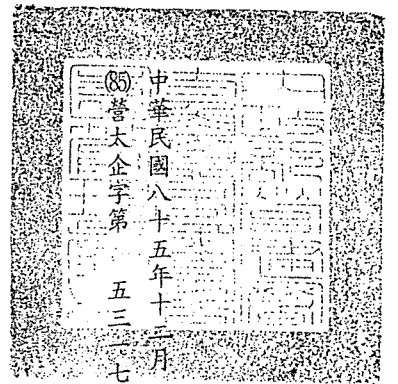 中華民國八十五年十二月
(85)營太企字第 五三一七